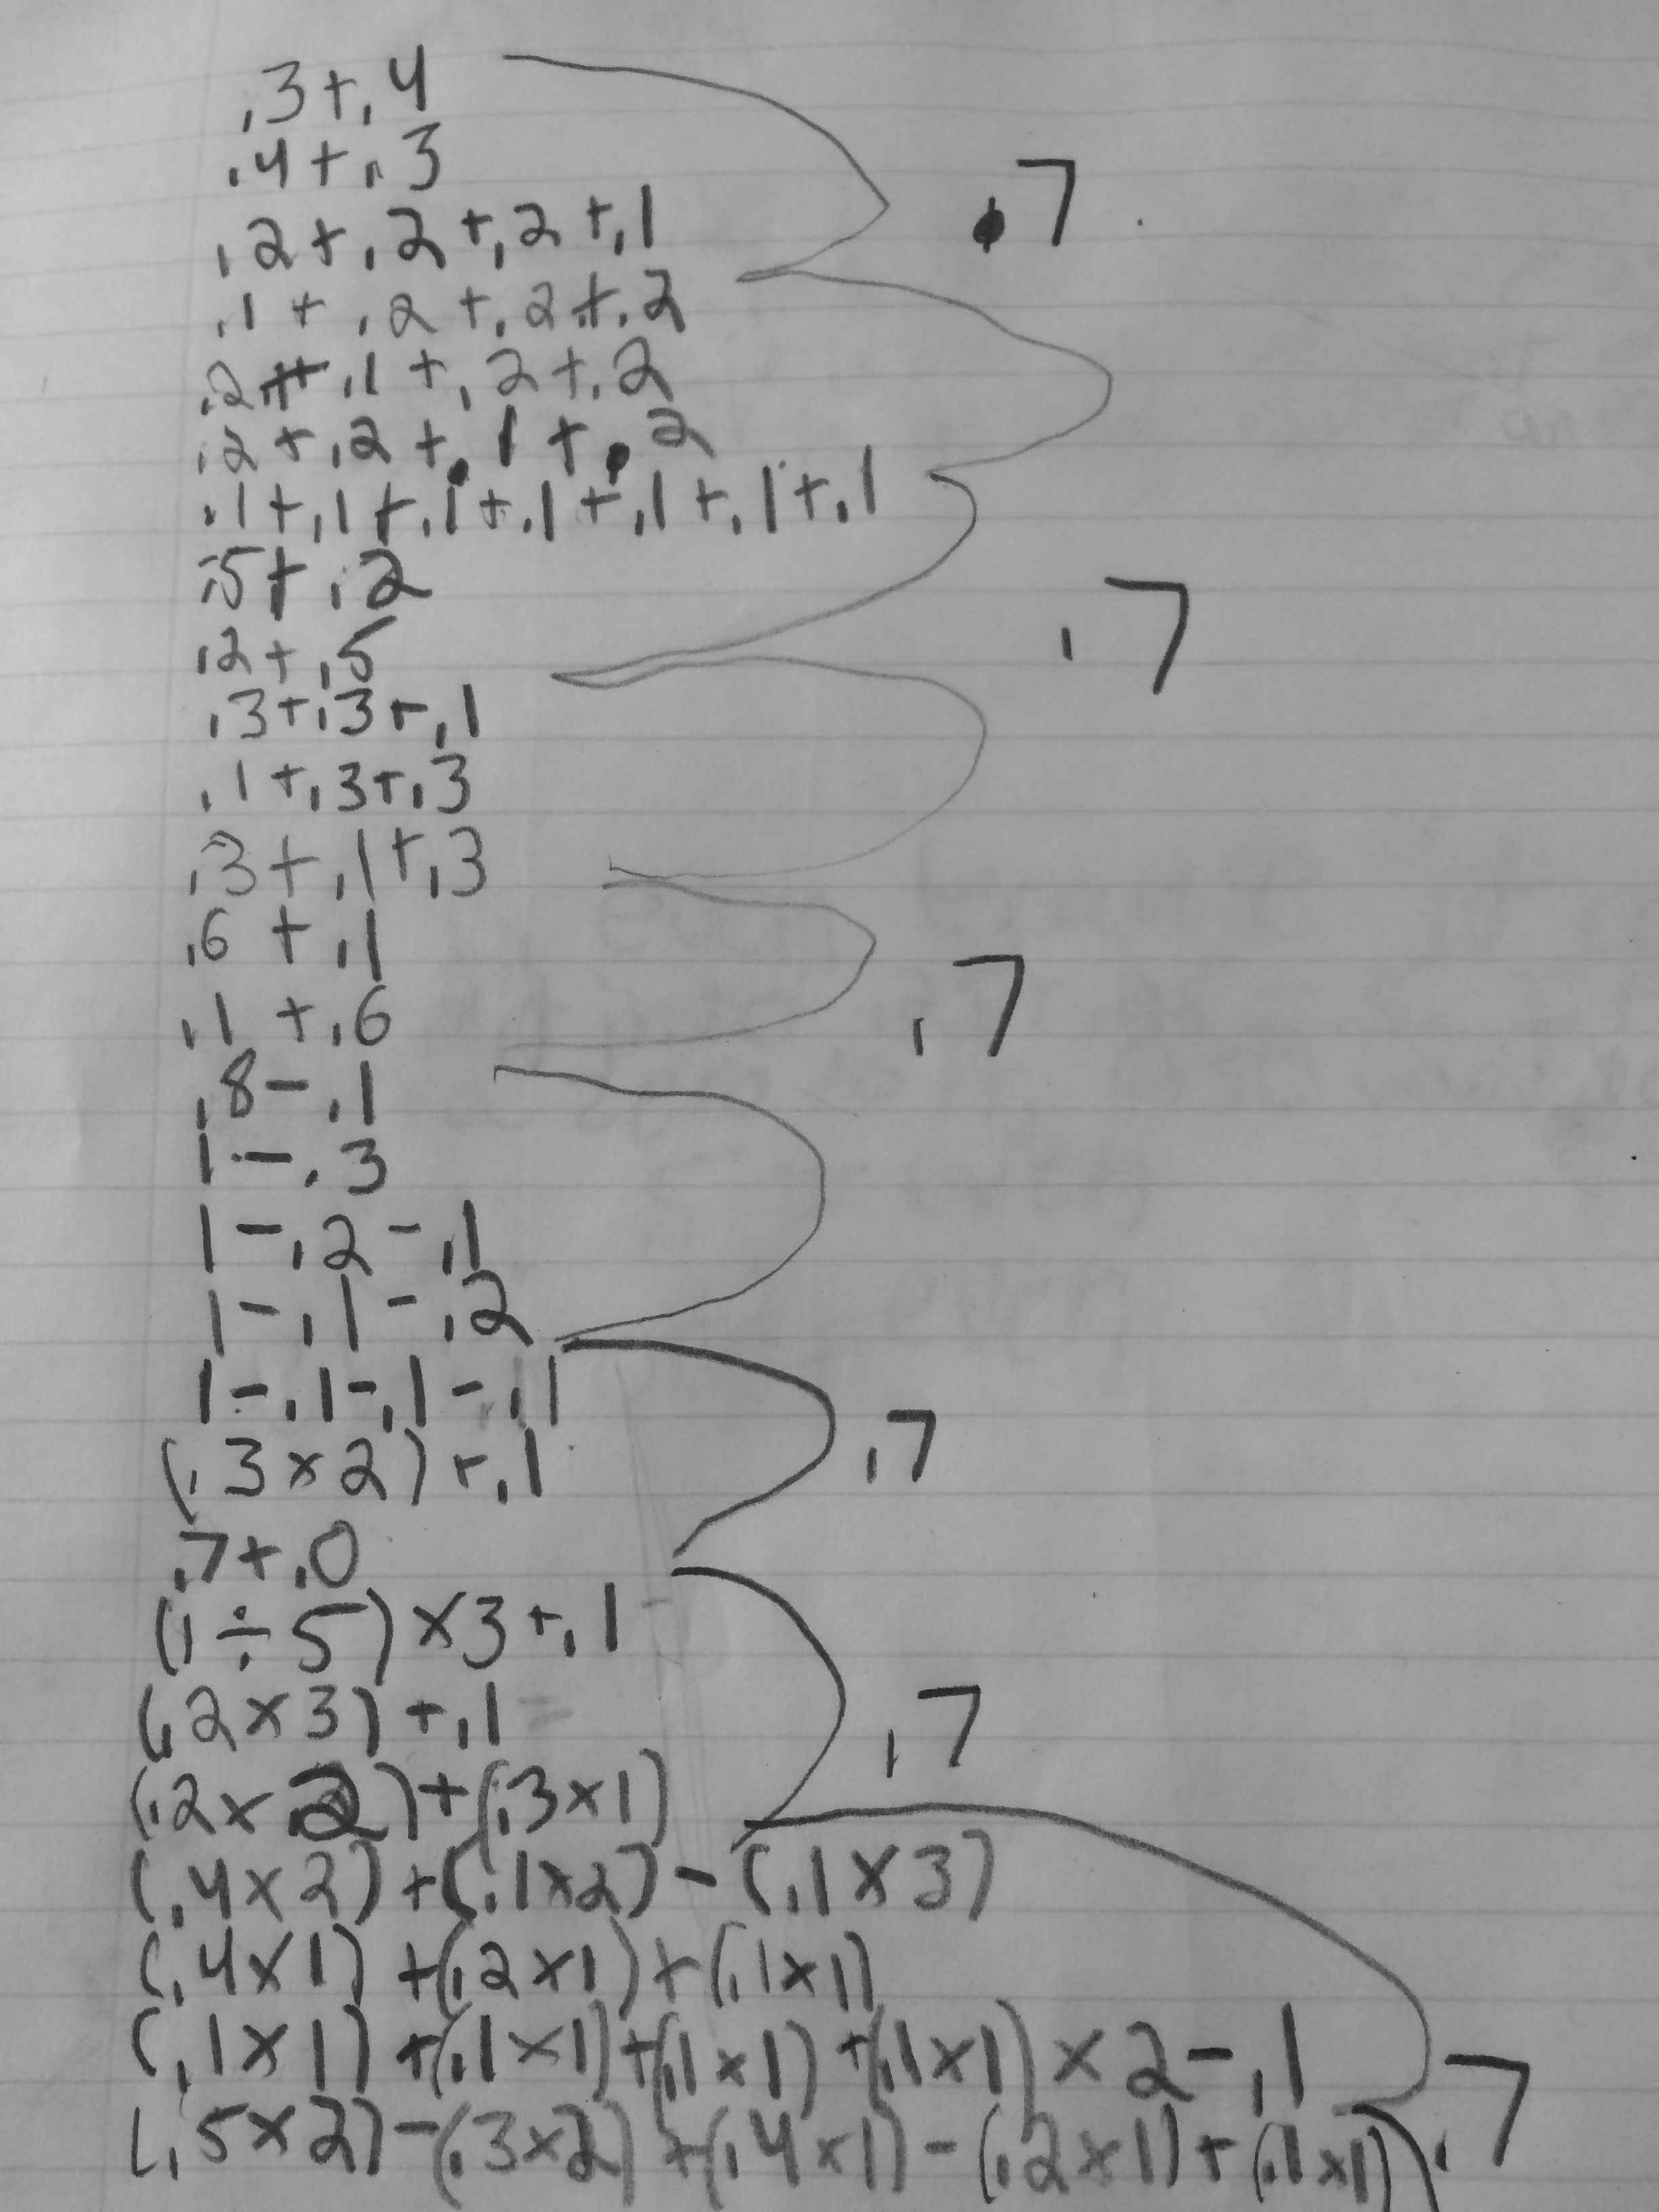 .3+.4
.4+.3
.2+.2+.2+.1
.7
.1+.2+.2+.2
.2+.1+.2+.2
.2+.2+.1+.2
.1+.1+.1+.1+.1+.1+.1
.5+.2
.2+.5
.7
.3+.3+.1
.1+.3+.3
.3+.1+.3
.6+.1
.1+.6
.7
.8-.1
1-.3
1-.2-.1
1-.1-.2
1-.1-.1-.1
.7
(.3×2)+.1
.7+.0
(1÷5)×3+.1
(.2×3)+.1
.7
(.2×2)+(.3×1)
(.4×2)+(.1×2)-(.1×3)
(.4×1)+(.2×1)+(.1×1)
(.1×1)+(.1×1)+(.1×1)+(.1×1)×2-.1
(.5×2)-(.3×2)+(.4×1)-(.2×1)+(.1×1)
.7